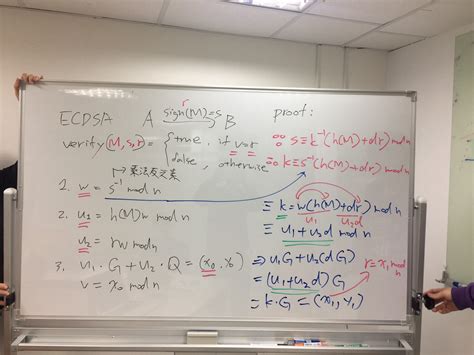 ECDSA A sign(M)=s B
r
verify(M,s,r) = { true, if v=r
false, otherwise
↦ 乘法反元素
2. w = s⁻¹ mod n
2. u₁ = h(M)w mod n
u₂ = rw mod n
3. u₁·G+u₂·Q = (x₀,y₀)
v = x₀ mod n
proof:
∵ s≡k⁻¹(h(M)+dr) mod n
∴ k≡s⁻¹(h(M)+dr) mod n
≡ k=w(h(M)+dr) mod n
u₁ u₂d
≡ u₁+u₂d mod n
⇒ u₁G+u₂(dG)
=(u₁+u₂d)G
=k·G=(x₁,y₁)
r=x₁ mod n